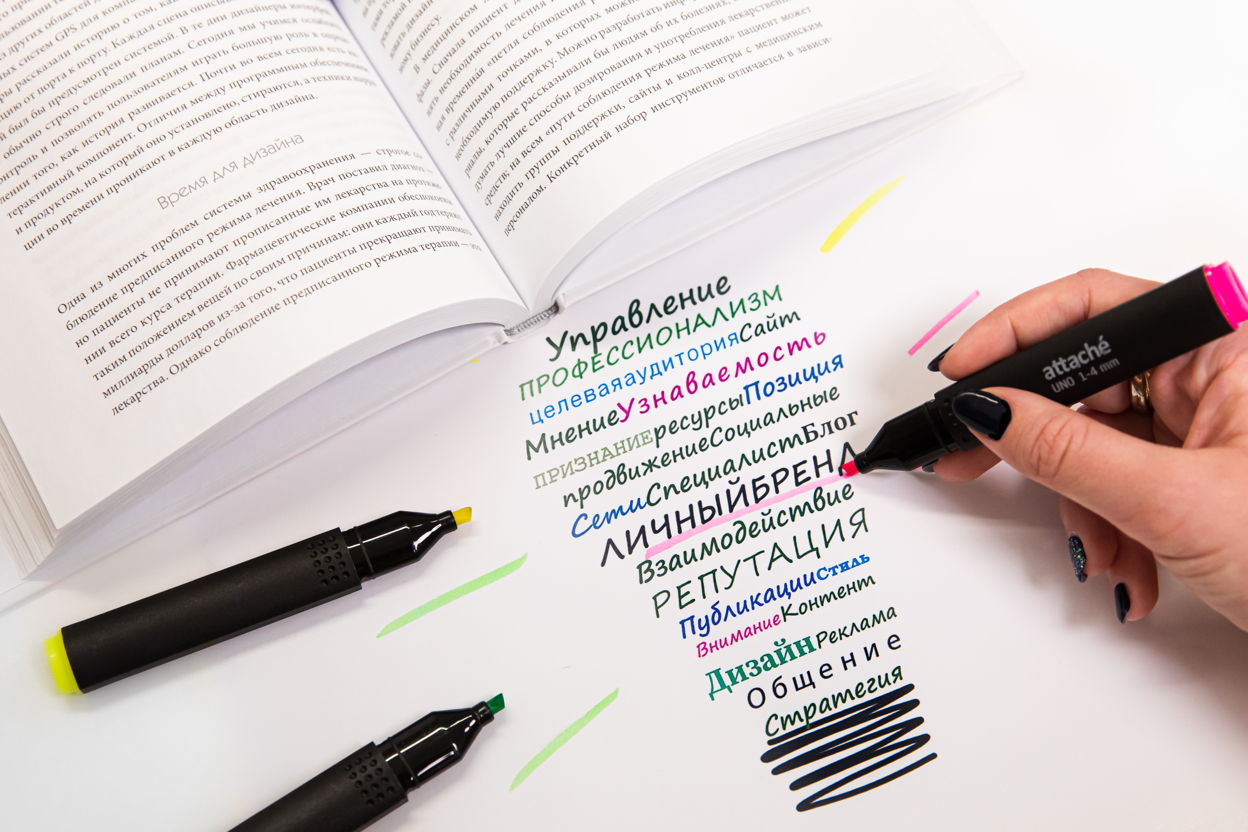 рассказали историю о том, как
от порта к порту. Каждая сцена описыва
был бы предусмотрен системой. В те дни дизайнеры интерак
обычно строго следовали планам. Сегодня мы учимся ослаблять
контроль и позволять пользователям играть большую роль в опреде
лении того, как история развивается. Почти во всем сегодня есть ин
терактивный компонент. Отличия между программным обеспечением
и продуктом, на который оно установлено, стираются, а техники
ции во времени проникают в каждую область дизайна.
Время для дизайна
Одна из многих проблем системы здравоохранения — строгое со
блюдение предписанного режима лечения. Врач поставил диагноз
но пациенты не принимают прописанные им лекарства на протяже
нии всего курса терапии. Фармацевтические компании обеспокоены
таким положением вещей по своим причинам: они каждый год теряют
миллиарды долларов из-за того, что пациенты прекращают принимать
лекарства. Однако соблюдение предписанного режима терапии — это
ному бизнесу.
В медицинском
фразы. Сначала пациент
лять необходимость лечения
ная временна́я «петля соблюдения
с различными точками, в которых можно
необходимую поддержку. Можно разработать
риалы, которые рассказывали бы людям об их болезнях,
думать лучшие способы дозирования и употребления лекарственных
средств; на всем «пути соблюдения режима лечения» пациент может
находить группы поддержки, сайты и колл-центры с медицинским
персоналом. Конкретный набор инструментов отличается в зависи-
Управление
ПРОФЕССИОНАЛИЗМ
целеваяаудиторияСайт
МнениеУзнаваемость
ПРИЗНАНИЕресурсыПозиция
продвижениеСоциальные
СетиСпециалистБлог
ЛИЧНЫЙБРЕНД
Взаимодействие
РЕПУТАЦИЯ
ПубликацииСтиль
ВниманиеКонтент
ДизайнРеклама
Общение
Стратегия
attaché
UNO 1-4 mm